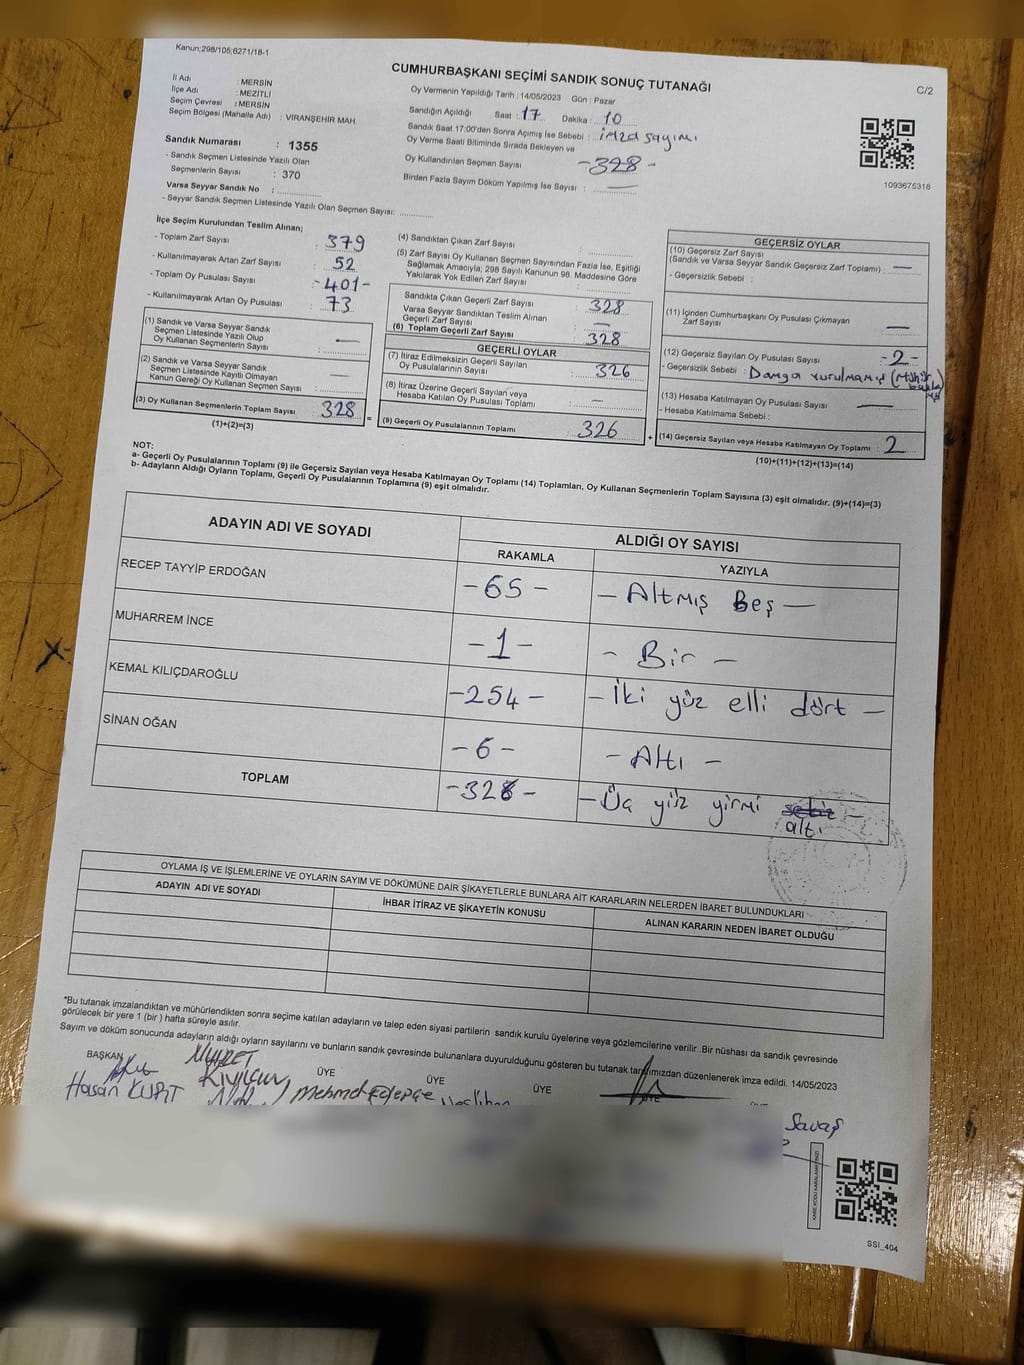 Kanun;298/105;6271/18-1
CUMHURBAŞKANI SEÇİMİ SANDIK SONUÇ TUTANAĞI
C/2
İl Adı : MERSİN
İlçe Adı : MEZİTLİ
Seçim Çevresi : MERSİN
Seçim Bölgesi (Mahalle Adı) : VİRANŞEHİR MAH.
Sandık Numarası : 1355
- Sandık Seçmen Listesinde Yazılı Olan
Seçmenlerin Sayısı : 370
Varsa Seyyar Sandık No :
- Seyyar Sandık Seçmen Listesinde Yazılı Olan Seçmen Sayısı:
Oy Vermenin Yapıldığı Tarih : 14/05/2023 Gün : Pazar
Sandığın Açıldığı Saat : 17 Dakika : 10
Sandık Saat 17.00'den Sonra Açılmış İse Sebebi : imza sayımı
Oy Verme Saati Bitiminde Sırada Bekleyen ve
Oy Kullandırılan Seçmen Sayısı -328-
Birden Fazla Sayım Döküm Yapılmış İse Sayısı : —
1093675318
İlçe Seçim Kurulundan Teslim Alınan;
- Toplam Zarf Sayısı : 379
- Kullanılmayarak Artan Zarf Sayısı : 52
- Toplam Oy Pusulası Sayısı : -401-
- Kullanılmayarak Artan Oy Pusulası : 73
(1) Sandık ve Varsa Seyyar Sandık
Seçmen Listesinde Yazılı Olup
Oy Kullanan Seçmenlerin Sayısı : —
(2) Sandık ve Varsa Seyyar Sandık
Seçmen Listesinde Kayıtlı Olmayan
Kanun Gereği Oy Kullanan Seçmen Sayısı : —
(3) Oy Kullanan Seçmenlerin Toplam Sayısı : 328 =
(1)+(2)=(3)
(4) Sandıktan Çıkan Zarf Sayısı :
(5) Zarf Sayısı Oy Kullanan Seçmen Sayısından Fazla İse, Eşitliği
Sağlamak Amacıyla; 298 Sayılı Kanunun 98. Maddesine Göre
Yakılarak Yok Edilen Zarf Sayısı :
Sandıkta Çıkan Geçerli Zarf Sayısı : 328
Varsa Seyyar Sandıktan Teslim Alınan
Geçerli Zarf Sayısı : —
(6) Toplam Geçerli Zarf Sayısı : 328
GEÇERLİ OYLAR
(7) İtiraz Edilmeksizin Geçerli Sayılan
Oy Pusulalarının Sayısı : 326
(8) İtiraz Üzerine Geçerli Sayılan veya
Hesaba Katılan Oy Pusulası Toplamı : —
(9) Geçerli Oy Pusulalarının Toplamı : 326 +
GEÇERSİZ OYLAR
(10) Geçersiz Zarf Sayısı
(Sandık ve Varsa Seyyar Sandık Geçersiz Zarf Toplamı) : —
- Geçersizlik Sebebi :
(11) İçinden Cumhurbaşkanı Oy Pusulası Çıkmayan
Zarf Sayısı : —
(12) Geçersiz Sayılan Oy Pusulası Sayısı : -2-
- Geçersizlik Sebebi : Damga vurulmamış
(13) Hesaba Katılmayan Oy Pusulası Sayısı : —
- Hesaba Katılmama Sebebi :
(14) Geçersiz Sayılan veya Hesaba Katılmayan Oy Toplamı : 2
(10)+(11)+(12)+(13)=(14)
NOT:
a- Geçerli Oy Pusulalarının Toplamı (9) ile Geçersiz Sayılan veya Hesaba Katılmayan Oy Toplamı (14) Toplamları, Oy Kullanan Seçmenlerin Toplam Sayısına (3) eşit olmalıdır. (9)+(14)=(3)
b- Adayların Aldığı Oyların Toplamı, Geçerli Oy Pusulalarının Toplamına (9) eşit olmalıdır.
ADAYIN ADI VE SOYADI ALDIĞI OY SAYISI
RAKAMLA YAZIYLA
RECEP TAYYİP ERDOĞAN -65- - Altmış Beş -
MUHARREM İNCE -1- - Bir -
KEMAL KILIÇDAROĞLU -254- - İki yüz elli dört -
SİNAN OĞAN -6- - Altı -
TOPLAM -326- - Üç yüz yirmi sekiz -
altı
OYLAMA İŞ VE İŞLEMLERİNE VE OYLARIN SAYIM VE DÖKÜMÜNE DAİR ŞİKAYETLERLE BUNLARA AİT KARARLARIN NELERDEN İBARET BULUNDUKLARI
ADAYIN ADI VE SOYADI İHBAR İTİRAZ VE ŞİKAYETİN KONUSU ALINAN KARARIN NEDEN İBARET OLDUĞU
*Bu tutanak imzalandıktan ve mühürlendikten sonra seçime katılan adayların ve talep eden siyasi partilerin sandık kurulu üyelerine veya gözlemcilerine verilir .Bir nüshası da sandık çevresinde
görülecek bir yere 1 (bir ) hafta süreyle asılır.
Sayım ve döküm sonucunda adayların aldığı oyların sayılarını ve bunların sandık çevresinde bulunanlara duyurulduğunu gösteren bu tutanak tarafımızdan düzenlenerek imza edildi. 14/05/2023
BAŞKAN ÜYE ÜYE ÜYE ÜYE
Hasan KURT Mehmet
Savaş
SSİ_404